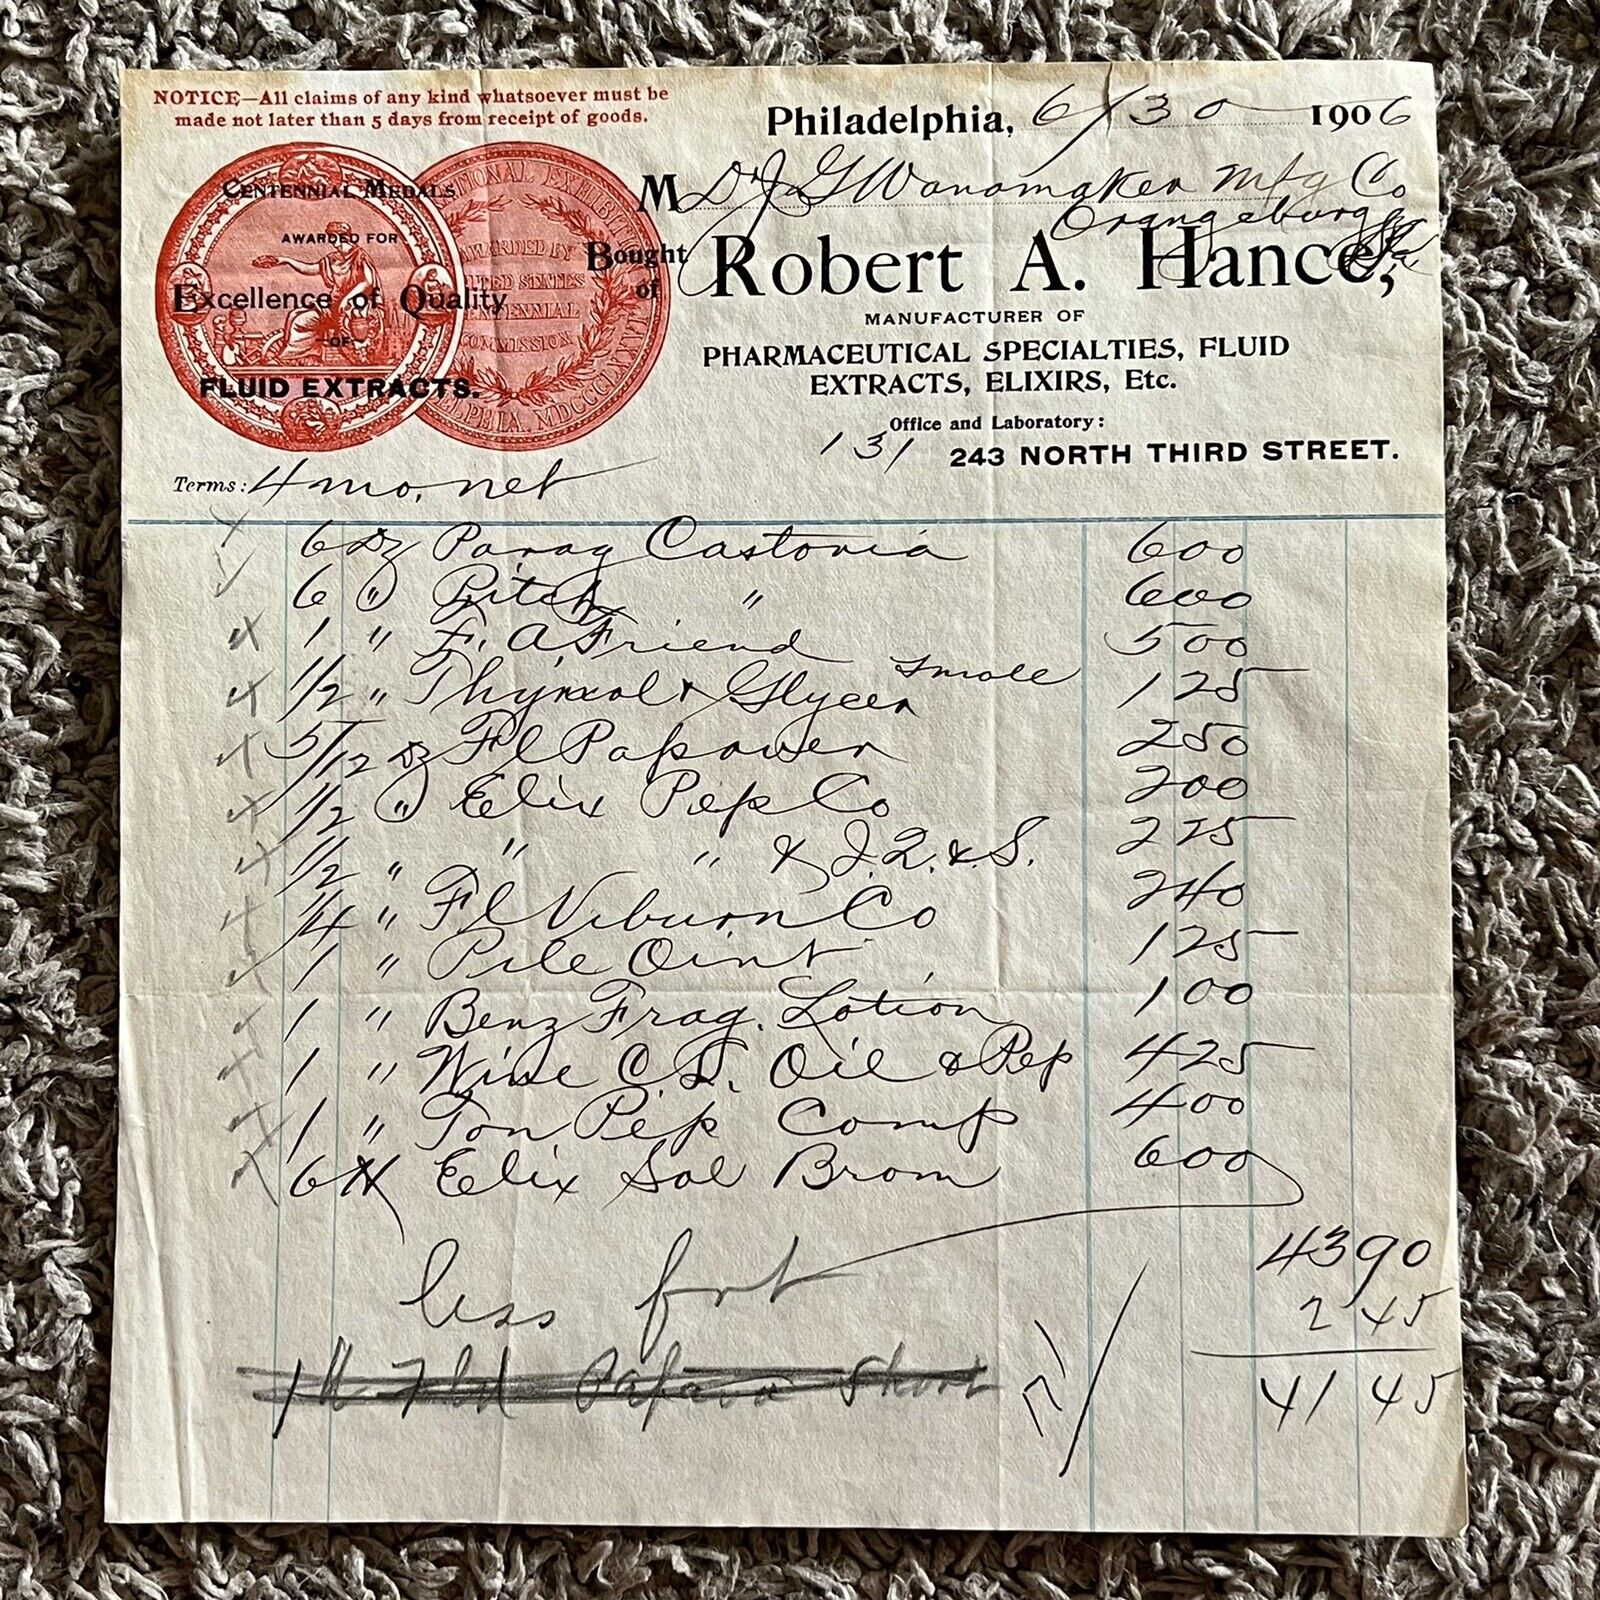 NOTICE—All claims of any kind whatsoever must be
made not later than 5 days from receipt of goods.
Philadelphia, 6/30 1906
CENTENNIAL MEDALS
AWARDED FOR
Excellence of Quality
OF
FLUID EXTRACTS.
AWARDED BY
UNITED STATES
CENTENNIAL
COMMISSION
M Dr J G Wanamaker Mfg Co
Orangeburg
Bought of Robert A. Hance,
MANUFACTURER OF
PHARMACEUTICAL SPECIALTIES, FLUID
EXTRACTS, ELIXIRS, Etc.
Office and Laboratory:
131 243 NORTH THIRD STREET.
Terms: 4 mo. net
6 Dz Parag Castoria 600
6 " Pitch " 600
1 " F. A. Friend 500
1/2 " Thymol & Glycer small 125
5/12 Dz Fl Papaver 250
1/2 " Elix Pep Co 200
1/2 " " " & I. Q. & S. 225
1/4 " Fl Viburn Co 240
1 " Pile Oint 125
1 " Benz Frag. Lotion 100
1 " Wine C. L. Oil & Pep 425
1 " Ton Pep Comp 400
6 Elix Sal Brom 600
4390
less frt 245
4145
Short